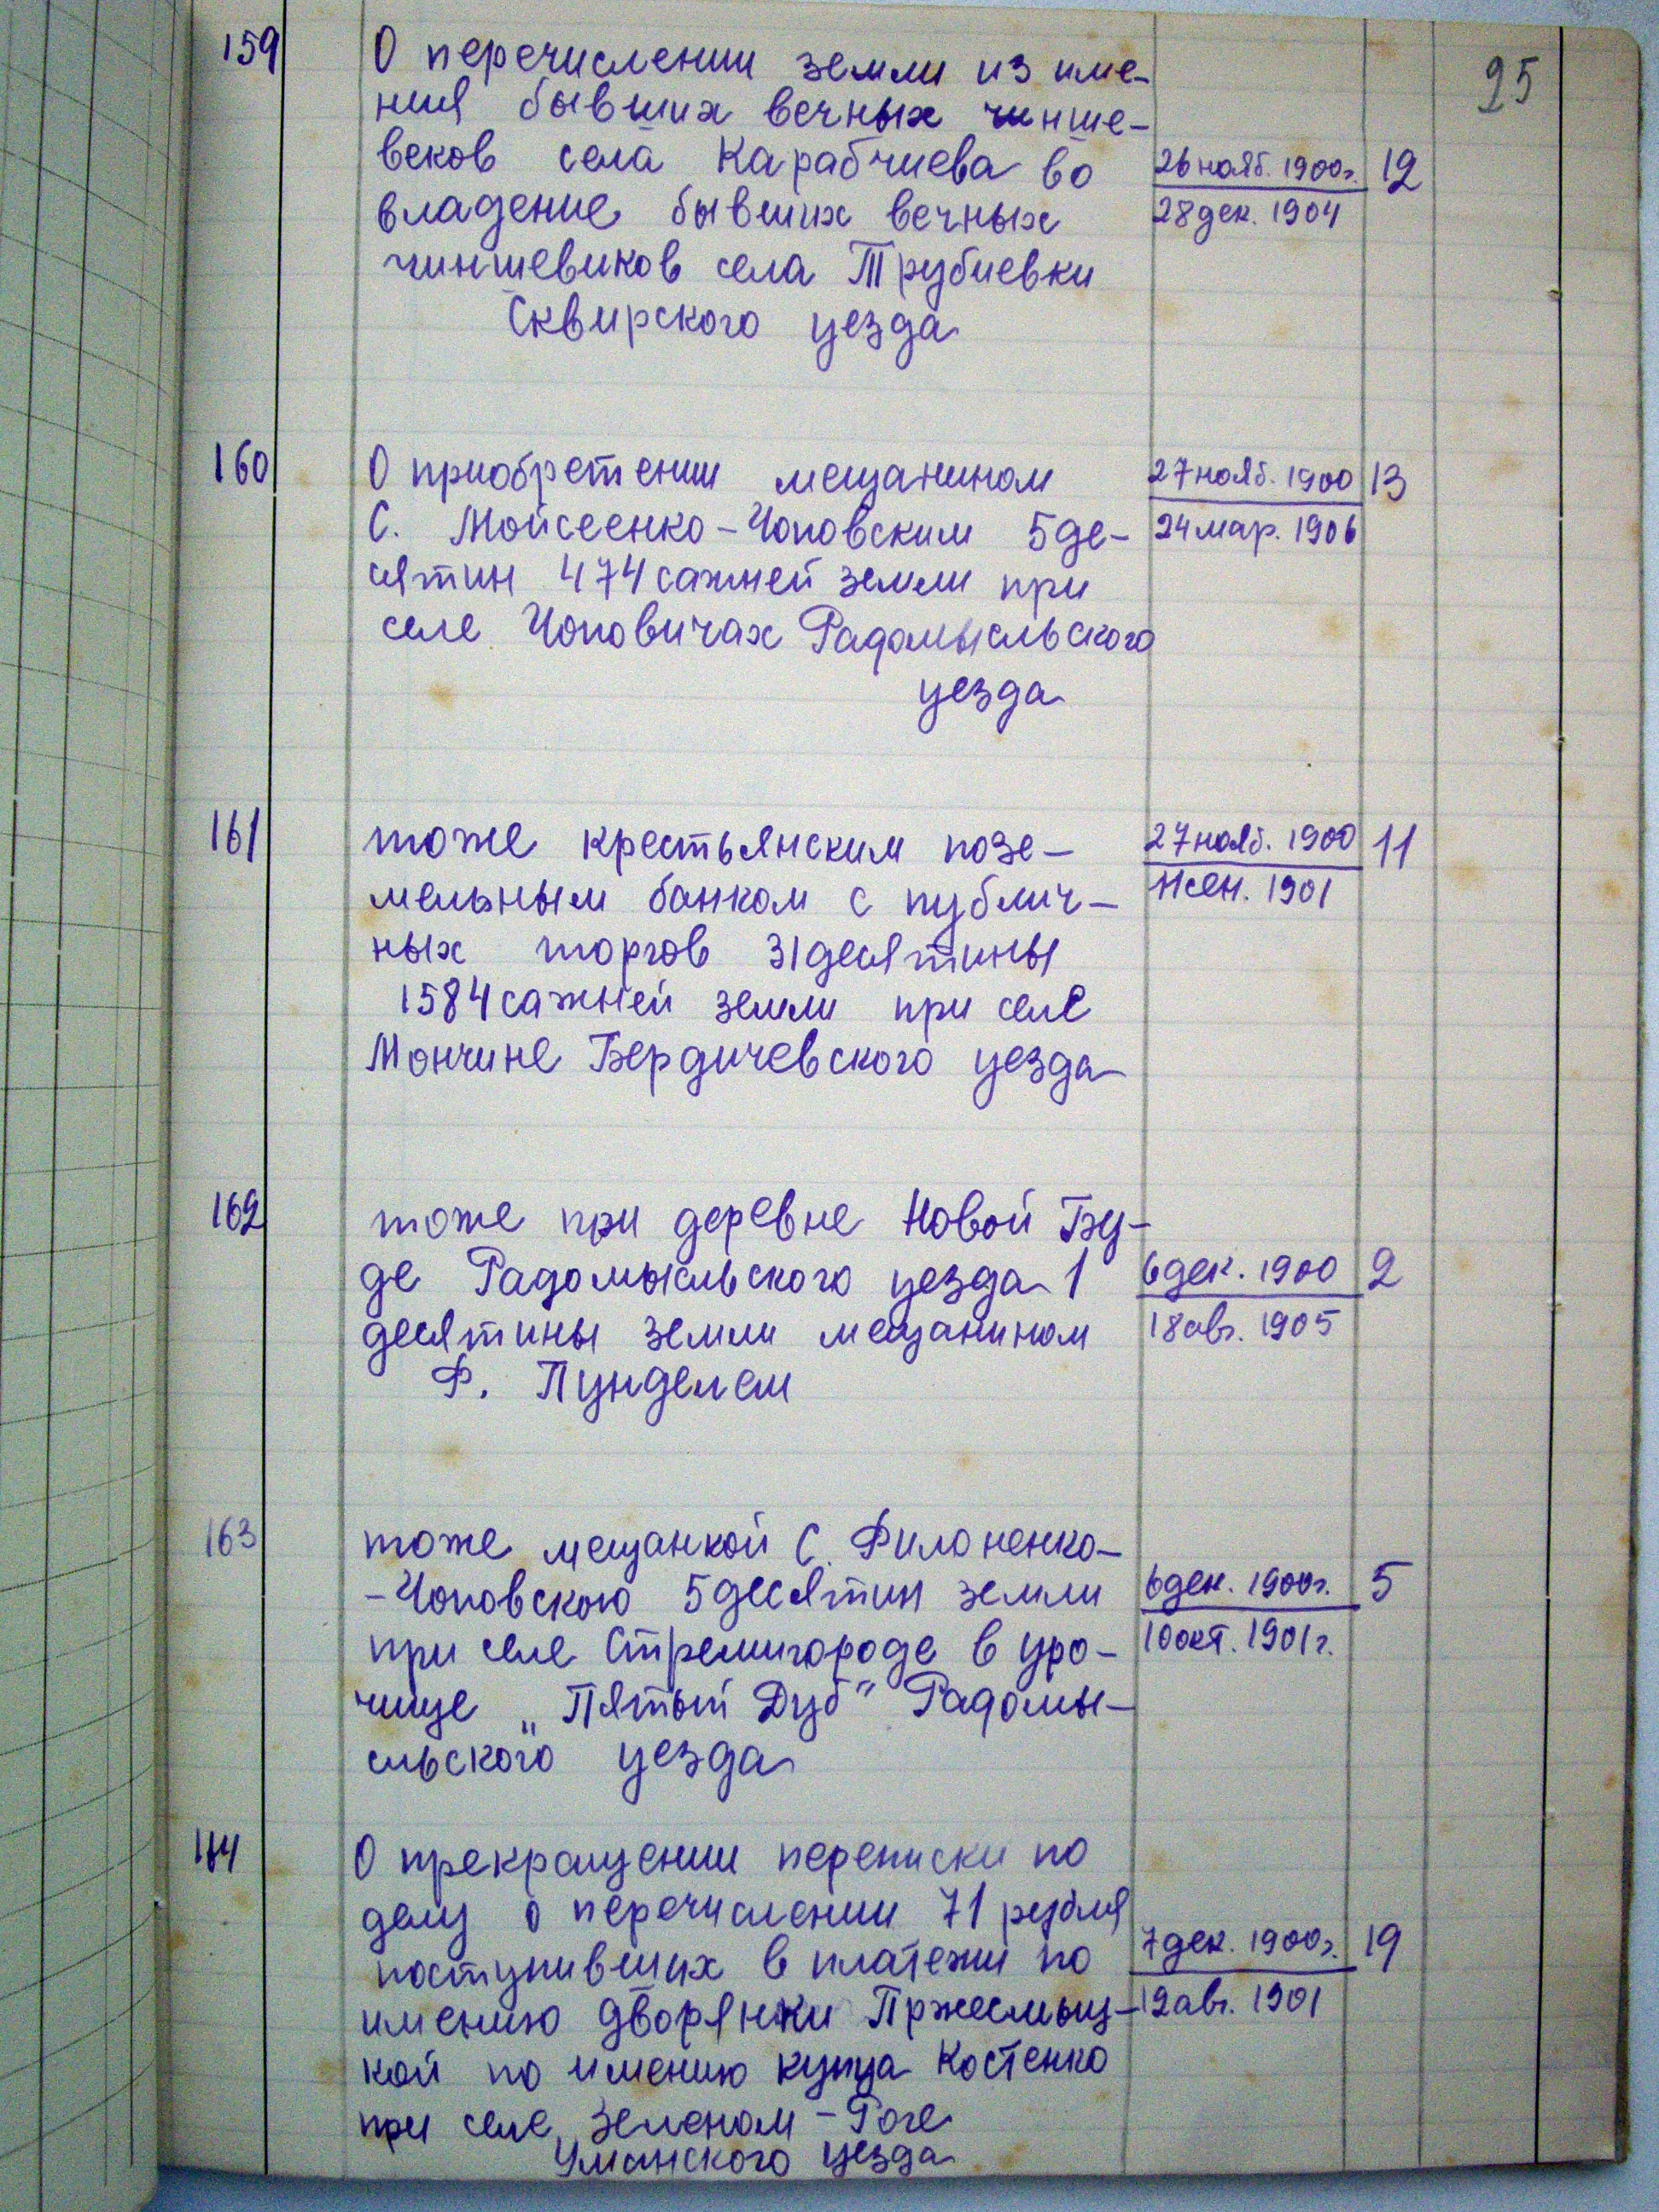 25
159
О перечислении земли из име-
ния бывших вечных чинше-
веков села Карабчиева во
владение бывших вечных
чиншевиков села Трубиевки
Сквирского уезда
26 нояб. 1900г.
28 дек. 1904
12
160
О приобретении мещанином
С. Мойсеенко-Чоповским 5 де-
сятин 474 сажней земли при
селе Чоповичах Радомысльского
уезда
27 нояб. 1900
24 мар. 1906
13
161
тоже крестьянским позе-
мельным банком с публич-
ных торгов 31 десятины
1584 сажней земли при селе
Мончине Бердичевского уезда
27 нояб. 1900
11 сен. 1901
11
162
тоже при деревне Новой Бу-
де Радомысльского уезда 1
десятины земли мещанином
Ф. Пунделем
6 дек. 1900
18 авг. 1905
2
163
тоже мещанкой С. Филоненко-
-Чоповскою 5 десятин земли
при селе Стремигороде в уро-
чище „Пятый Дуб" Радомы-
сльского уезда
6 дек. 1900г.
10 окт. 1901г.
5
О прекращении переписки по
делу о перечислении 71 рубля
поступивших в платежи по
имению дворянки Пржесмыц-
кой по имению купца Костенко
при селе Зеленом-Роге
Уманского уезда
7 дек. 1900г.
12 авг. 1901
19